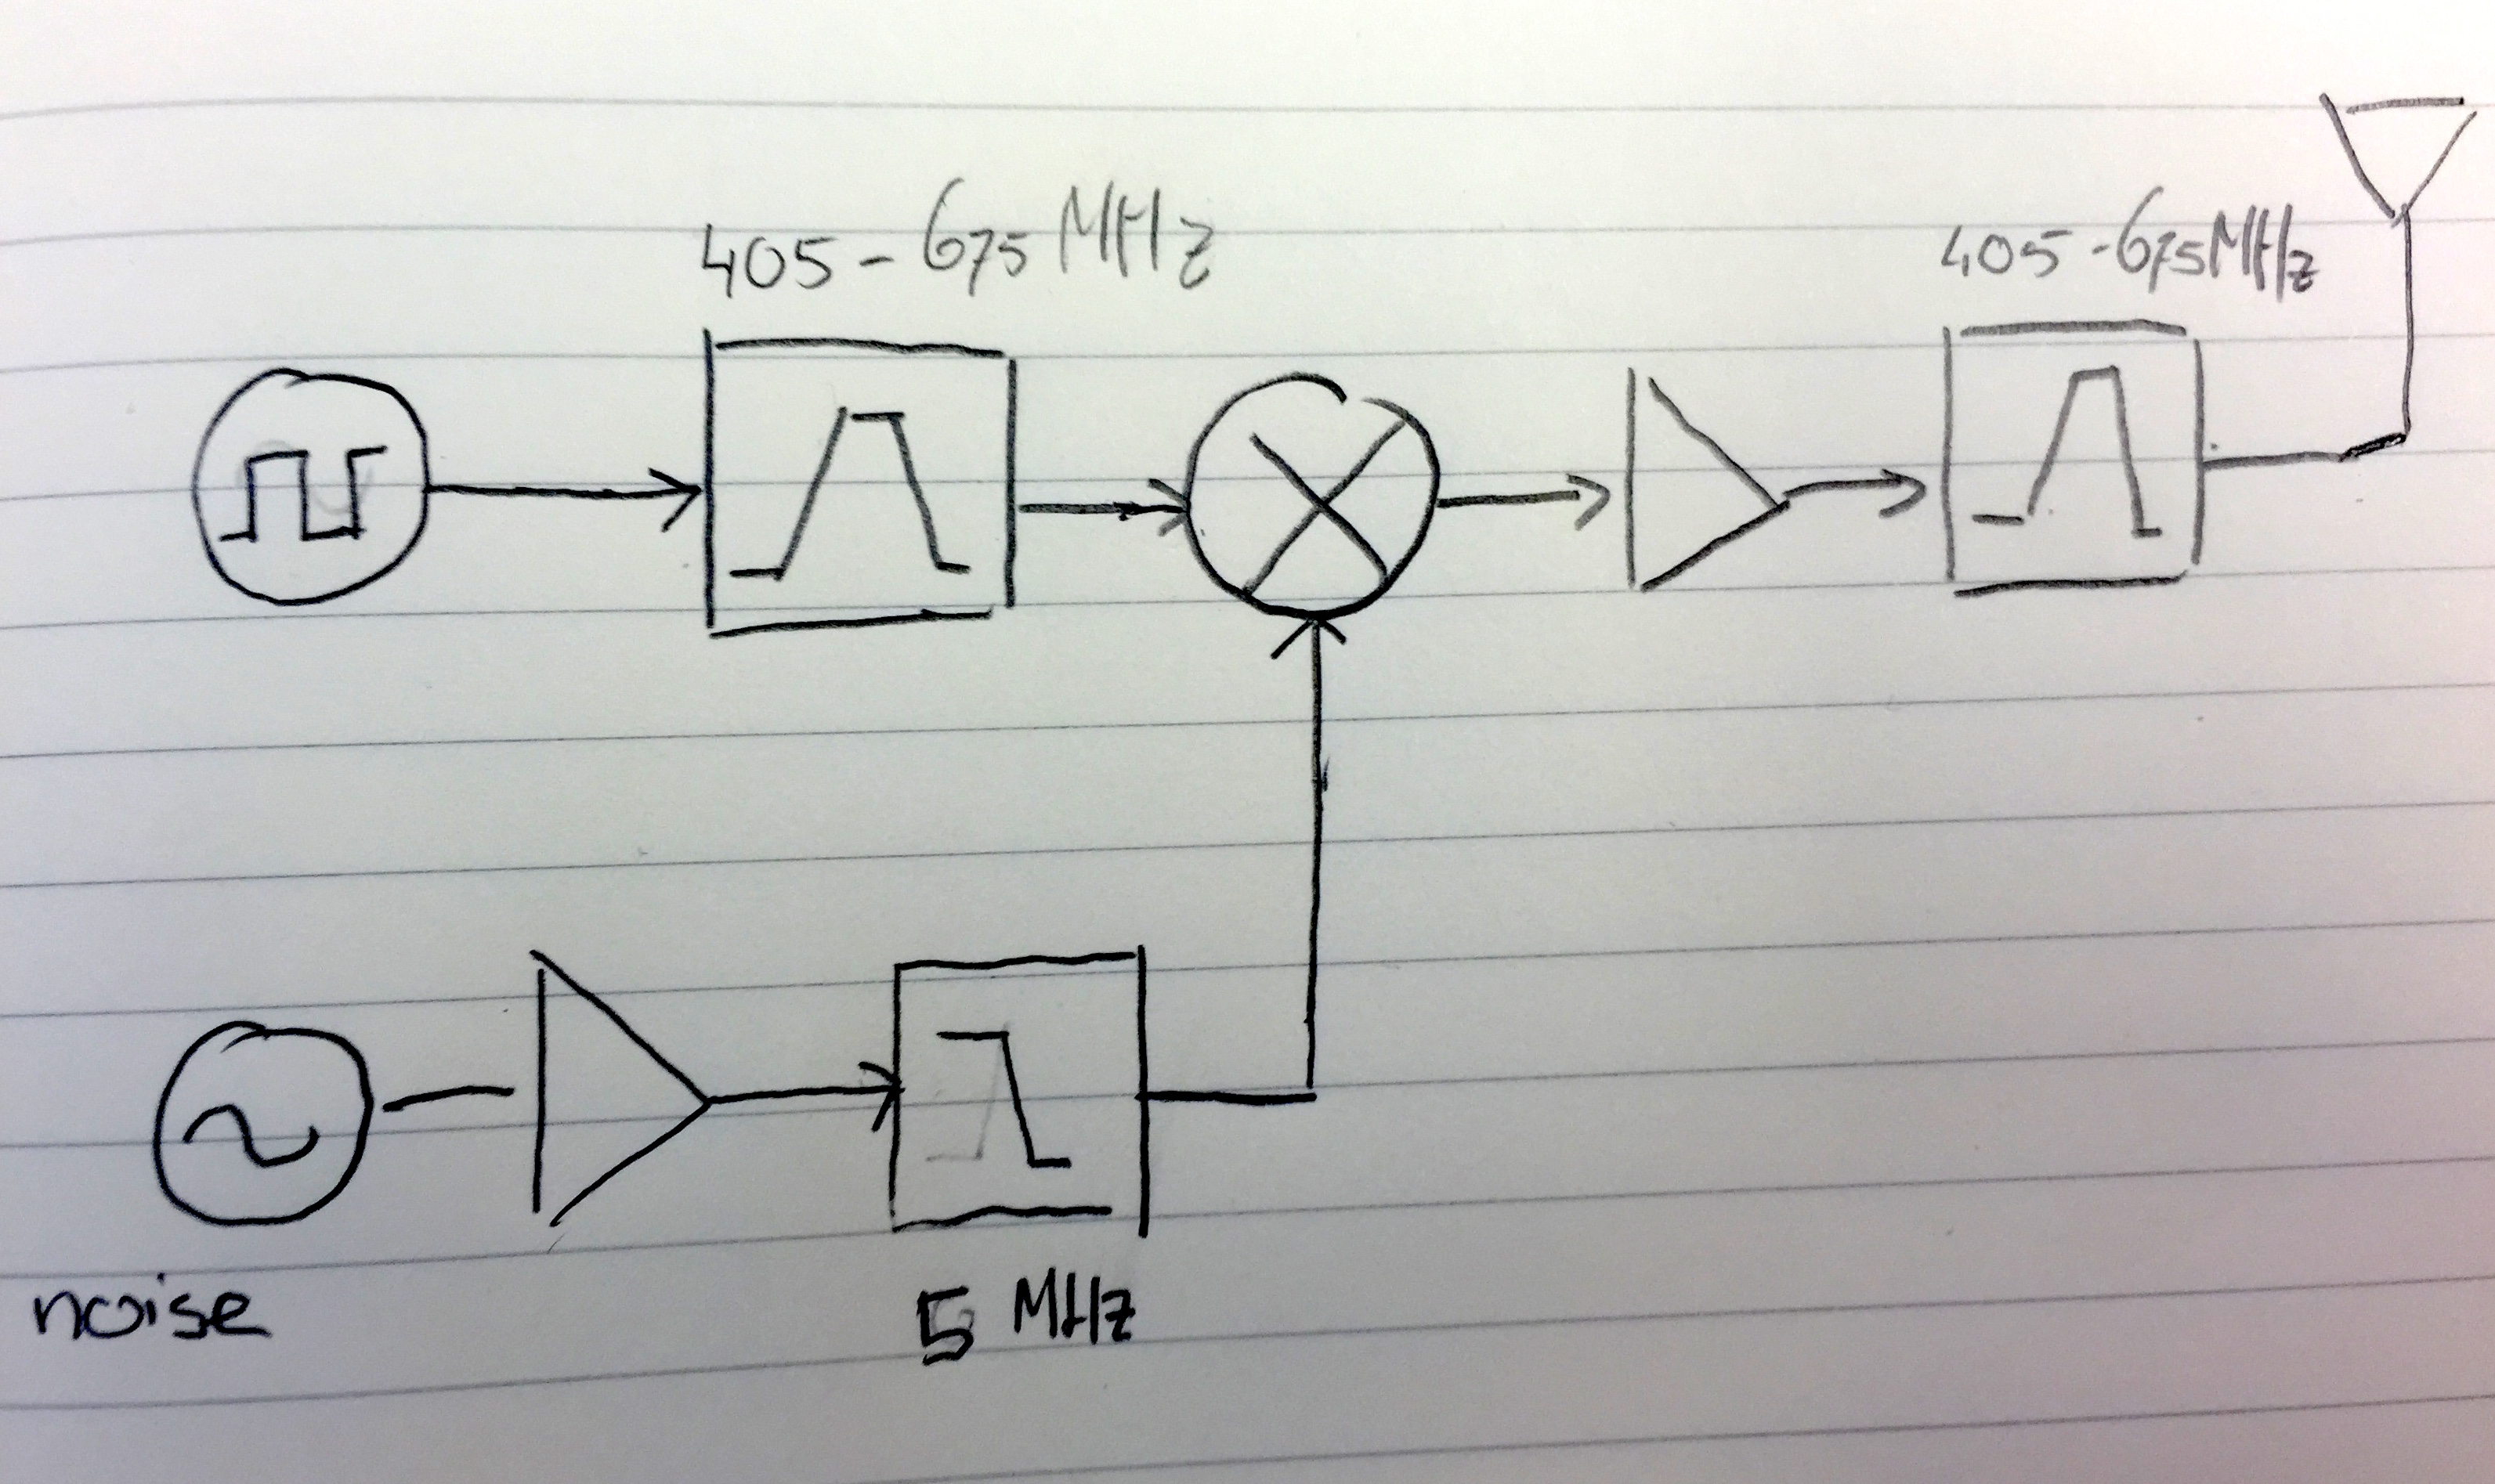 405 - 675 MHz
405 - 675 MHz
noise
5 MHz